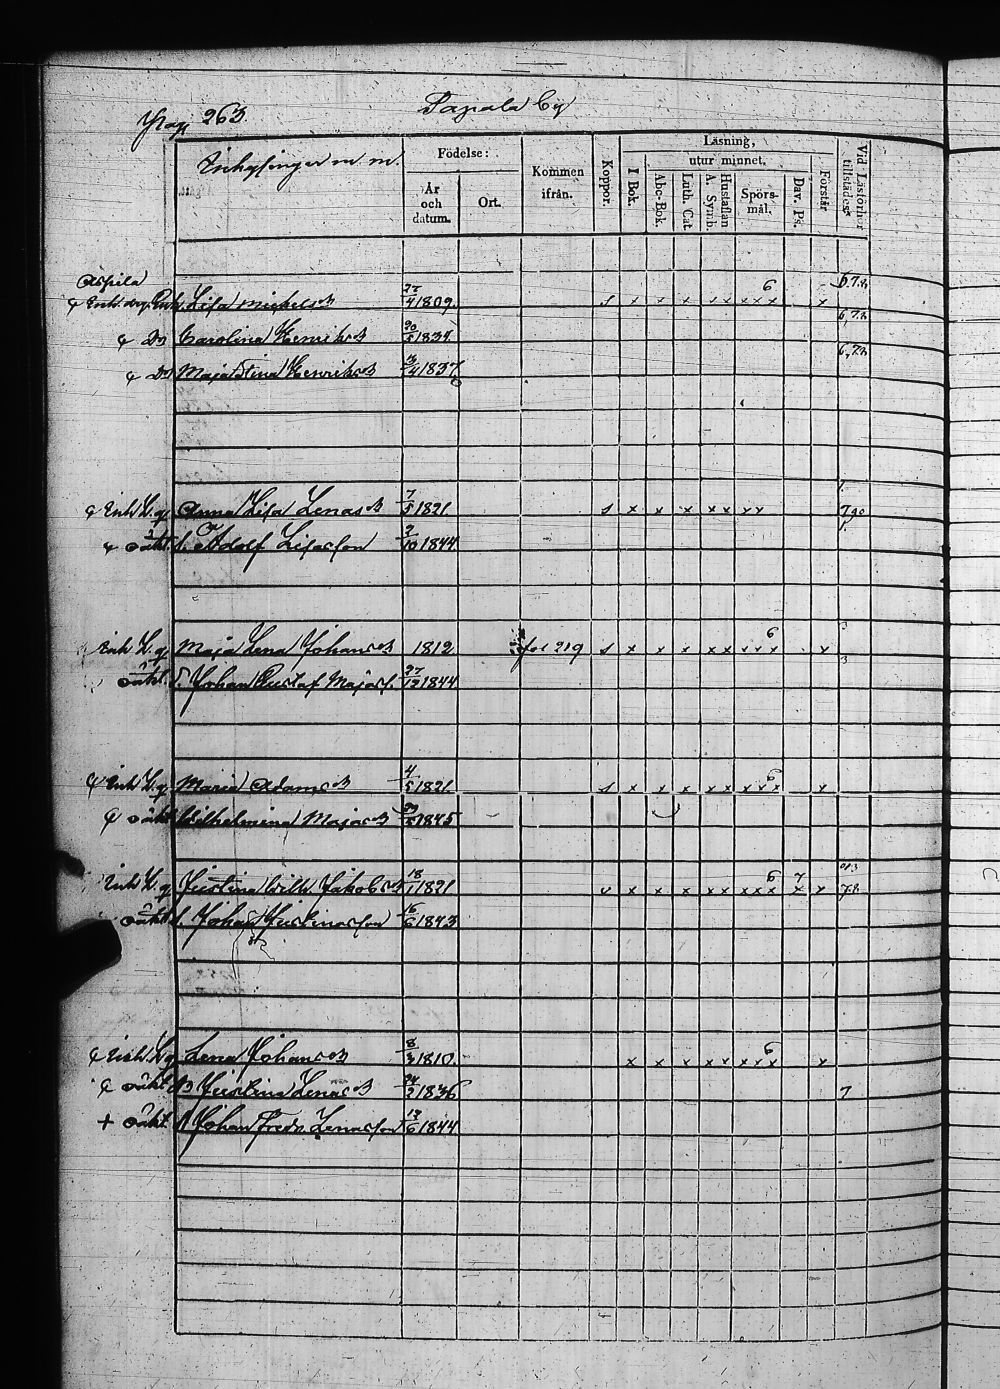 Pag. 263
Sapala By
Inhysingar m. m.
Födelse:
År och datum.
Ort.
Kommen ifrån.
Koppor.
Läsning,
utur minnet.
I Bok.
Abc-Bok.
Luth. Cat.
Hustaflan A. Symb.
Spörsmål.
Dav. Ps.
Förstår
Vid Läsförhör tillstädes
Lisa Michelsd 22/4 1809 s x x x x x x x x 6 x 6,7,8
Do Carolina Henriksd 20/5 1834 6,7,8
Do Maja Stina Henriksd 3/4 1837 6,7,8
Inh. L. q. Anna Lisa Lenasd 7/5 1821 s x x x x x x x
oäkt. S. Adolf Lisasson 2/10 1844
Inh. L. q. Maja Lena Johansd 1812 fol 219 s x x x x x x x x 6 x
oäkt. S. Johan Gustaf Majas s. 27/12 1844
Inh. L. q. Maria Adamsd 4/5 1821 s x x x x x x x x 6 x
oäkt. Wilhelmina Majasd 1845
Inh. L. q. Justina Wilh. Jakobsd 18/1 1821 v x x x x x x x x 6 x 7 x
oäkt. S. Johan Justinasson 16/6 1843
Inh. L. q. Lena Johansd 8/3 1810 x x x x x x x x 6 x
oäkt. D Justina Lenasd 24/2 1836 7
+ oäkt. S Johan Fredr. Lenasson 12/6 1844